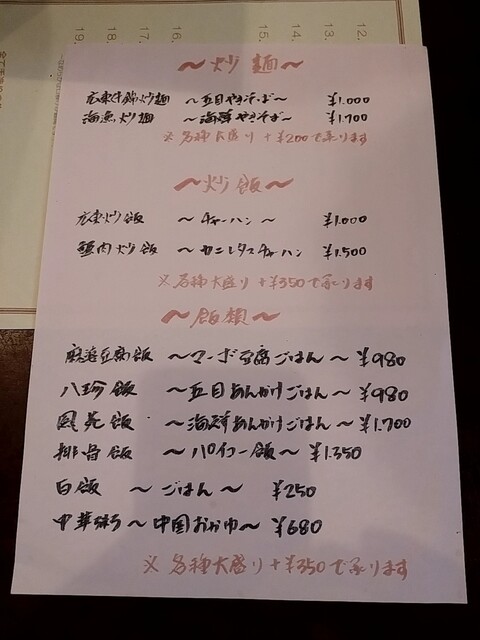 12.
13.
14.
15.
16.
17.
18.
19.
～炒麺～
広東什錦炒麺 ～五目やきそば～ ¥1.000
海漁炒麺 ～海鮮やきそば～ ¥1.700
※各種大盛り+¥200で承ります
～炒飯～
広東炒飯 ～チャーハン～ ¥1.000
蟹肉炒飯 ～カニレタスチャーハン ¥1.500
※各種大盛り+¥350で承ります
～飯類～
麻婆豆腐飯 ～マーボ豆腐ごはん～ ¥980
八珍飯 ～五目あんかけごはん～ ¥980
～海鮮あんかけごはん～ ¥1.700
排骨飯 ～パイコー飯～ ¥1.350
白飯 ～ごはん～ ¥250
中華粥 ～中国おかゆ～ ¥680
※各種大盛り+¥350で承ります